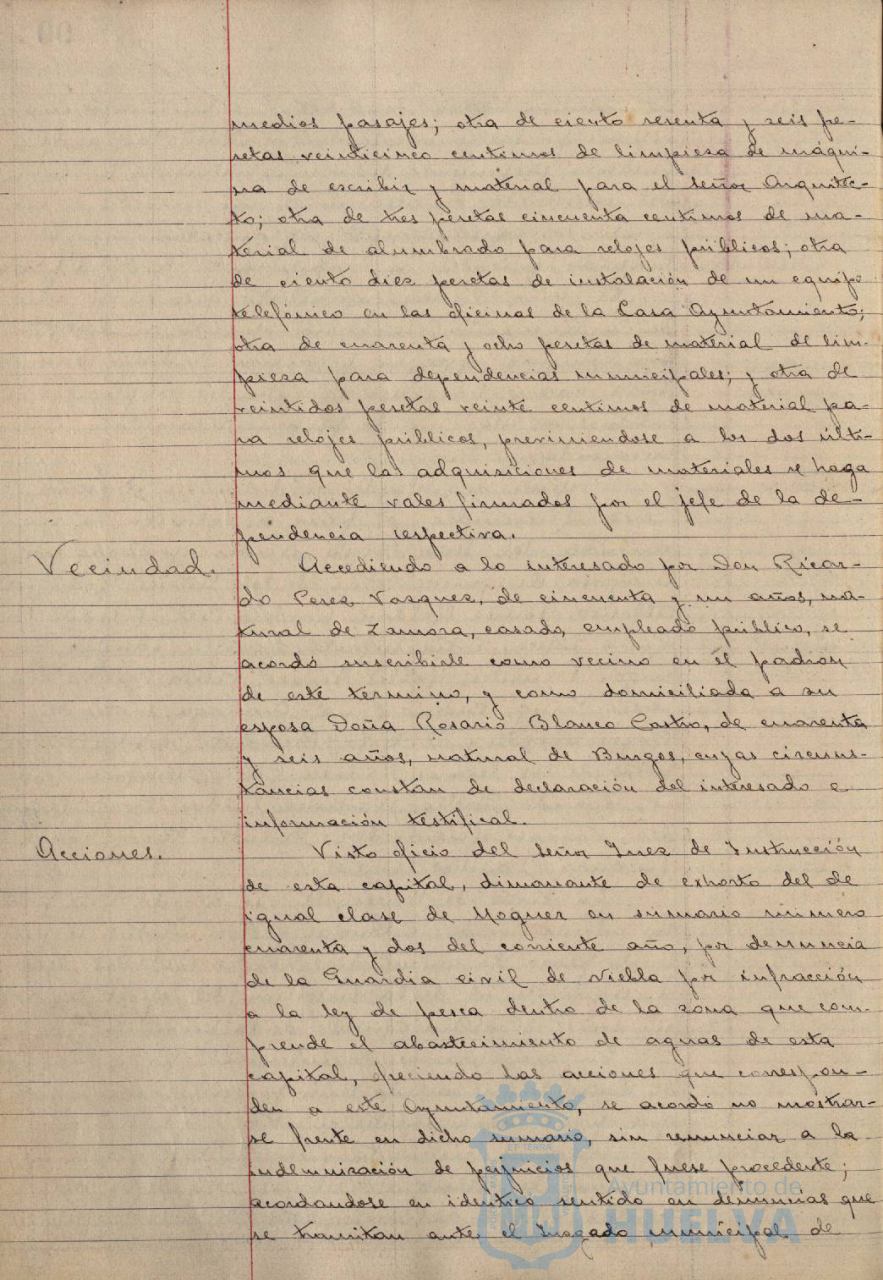 medios pasajes; otra de ciento sesenta y seis pe-
setas veinticinco centimos de limpieza de máqui-
na de escribir y material para el señor Arquitec-
to; otra de tres pesetas cincuenta centimos de ma-
terial de alumbrado para relojes públicos; otra
de ciento diez pesetas de instalación de un equipo
telefónico en las oficinas de la Casa Ayuntamiento;
otra de cuarenta y ocho pesetas de material de lim-
pieza para dependencias municipales; y otra de
veintidos pesetas veinte centimos de material pa-
ra relojes públicos, previniendose a los dos últi-
mos que las adquisiciones de materiales se haga
mediante vales firmados por el jefe de la de-
pendencia respectiva.
Vecindad.
Accediendo a lo interesado por Don Ricar-
do Perez Vazquez, de cincuenta y un años, na-
tural de Zamora, casado, empleado público, se
acordó inscribirle como vecino en el padron
de este término, y como domiciliada a su
esposa Doña Rosario Blanco Castro, de cuarenta
y seis años, natural de Burgos, cuyas circuns-
tancias constan de declaración del interesado e
información testifical.
Acciones.
Visto oficio del Señor Juez de Instrucción
de esta capital, dimanante de exhorto del de
igual clase de Moguer en sumario número
cuarenta y dos del corriente año, por denuncia
de la Guardia civil de Niebla por infracción
a la ley de pesca dentro de la zona que com-
prende el abastecimiento de aguas de esta
capital, ofreciendo las acciones que correspon-
den a este Ayuntamiento, se acordó no mostrar-
se parte en dicho sumario, sin renunciar a la
indemnización de perjuicios que fuese procedente;
acordandose en identico sentido en denuncias que
se tramitan ante el Juzgado municipal de
Ayuntamiento de
HUELVA